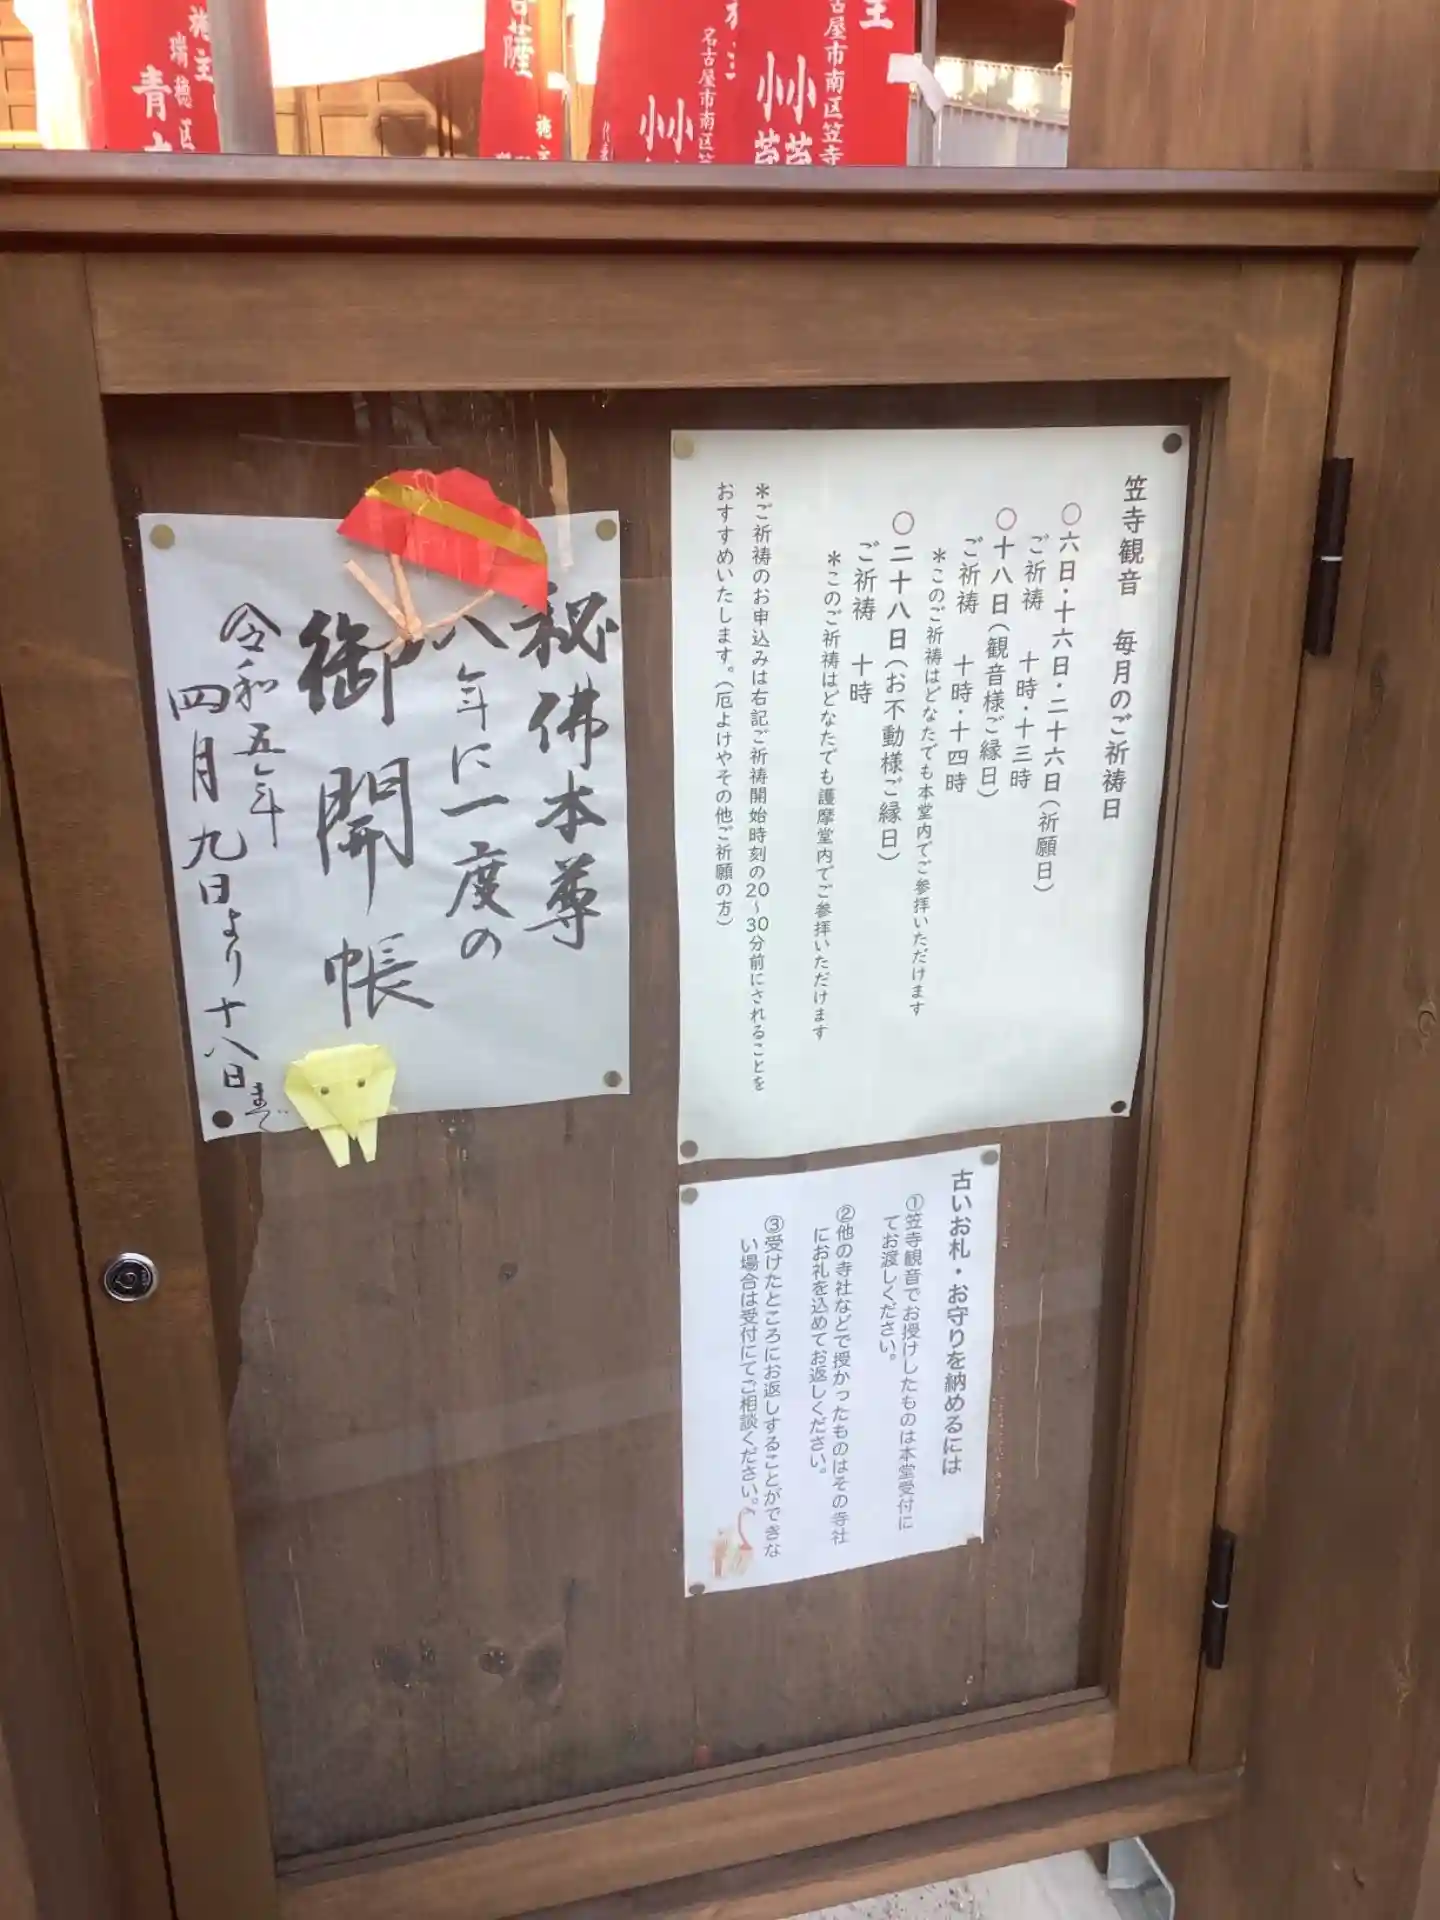 施主
瑞穂区
青
菩薩
施主
名古屋市南区笠
主
名古屋市南区笠寺
笠寺観音　毎月のご祈祷日
〇六日・十六日・二十六日（祈願日）
ご祈祷　十時・十三時
〇十八日（観音様ご縁日）
ご祈祷　十時・十四時
＊このご祈祷はどなたでも本堂内でご参拝いただけます
〇二十八日（お不動様ご縁日）
ご祈祷　十時
＊このご祈祷はどなたでも護摩堂内でご参拝いただけます
＊ご祈祷のお申込みは右記ご祈祷開始時刻の20～30分前にされることを
おすすめいたします。（厄よけやその他ご祈願の方）
秘佛本尊
八年に一度の
御開帳
令和五年
四月九日より十八日まで
古いお札・お守りを納めるには
①笠寺観音でお授けしたものは本堂受付に
てお渡しください。
②他の寺社などで授かったものはその寺社
にお礼を込めてお返しください。
③受けたところにお返しすることができな
い場合は受付にてご相談ください。